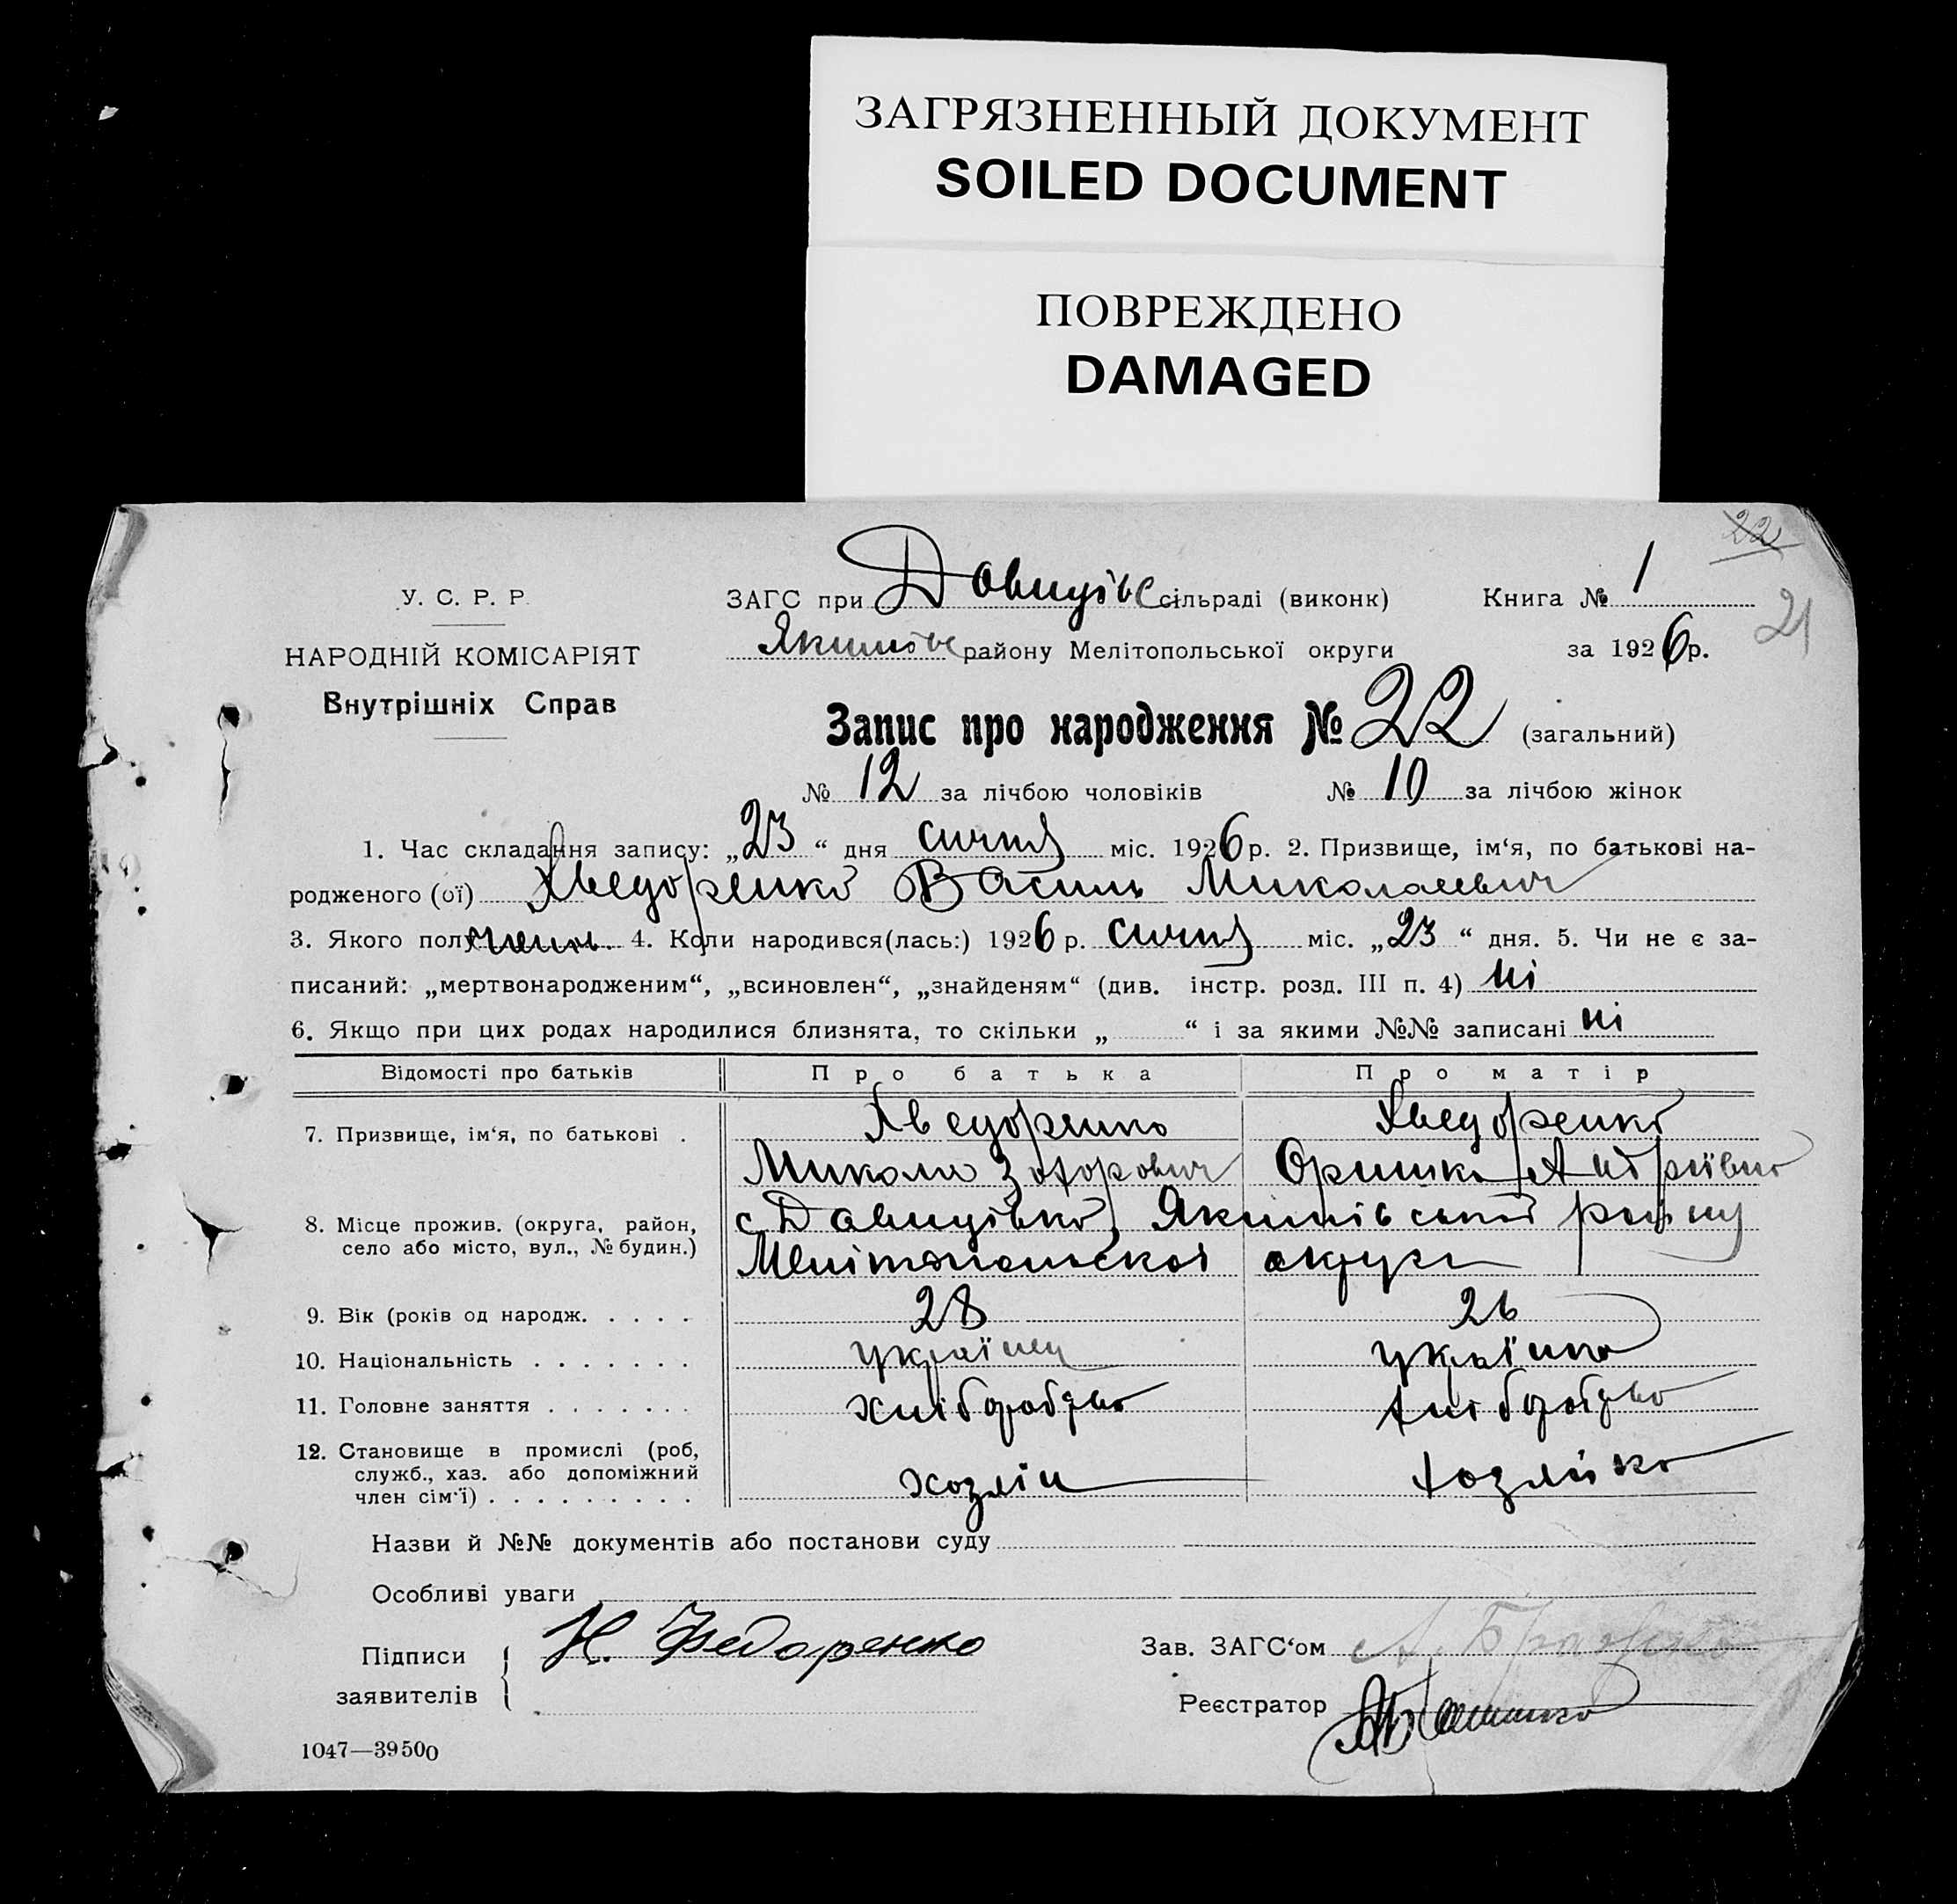 ЗАГРЯЗНЕННЫЙ ДОКУМЕНТ
SOILED DOCUMENT
ПОВРЕЖДЕНО
DAMAGED
22
21
У. С. Р. Р.
НАРОДНІЙ КОМІСАРІЯТ
Внутрішніх Справ
ЗАГС при Давидівс сільраді (виконк) Книга № 1
Якимовс району Мелітопольської округи за 1926 р.
Запис про народження № 22 (загальний)
№ 12 за лічбою чоловіків № 10 за лічбою жінок
1. Час складання запису: „23“ дня січня міс. 1926 р. 2. Призвище, ім‘я, по батькові на-
родженого (ої) Хведоренко Василь Миколаевич
3. Якого полу 4. Коли народився(лась:) 1926 р. січня міс. „23“ дня. 5. Чи не є за-
писаний: „мертвонародженим“, „всиновлен“, „знайденям“ (див. інстр. розд. III п. 4) ні
6. Якщо при цих родах народилися близнята, то скільки „ “ і за якими №№ записані ні
Відомості про батьків Про батька Про матір
7. Призвище, ім‘я, по батькові . Хведоренко Хведоренко
Микола Захорович Оришка Андріївна
8. Місце прожив. (округа, район, с Давидівка, Якимівської району
село або місто, вул., № будин.) Мелітопольской округи
9. Вік (років од народж. . . . . 28 26
10. Національність . . . . . . . українец українка
11. Головне заняття . . . . . . . хліборобство хліборобство
12. Становище в промислі (роб,
служб., хаз. або допоміжний
член сім‘ї) . . . . . . . . . хозяін хозяйка
Назви й №№ документів або постанови суду
Особливі уваги
Підписи
заявителів
Н. Федоренко
Зав. ЗАГС‘ом
Реєстратор
1047—39500